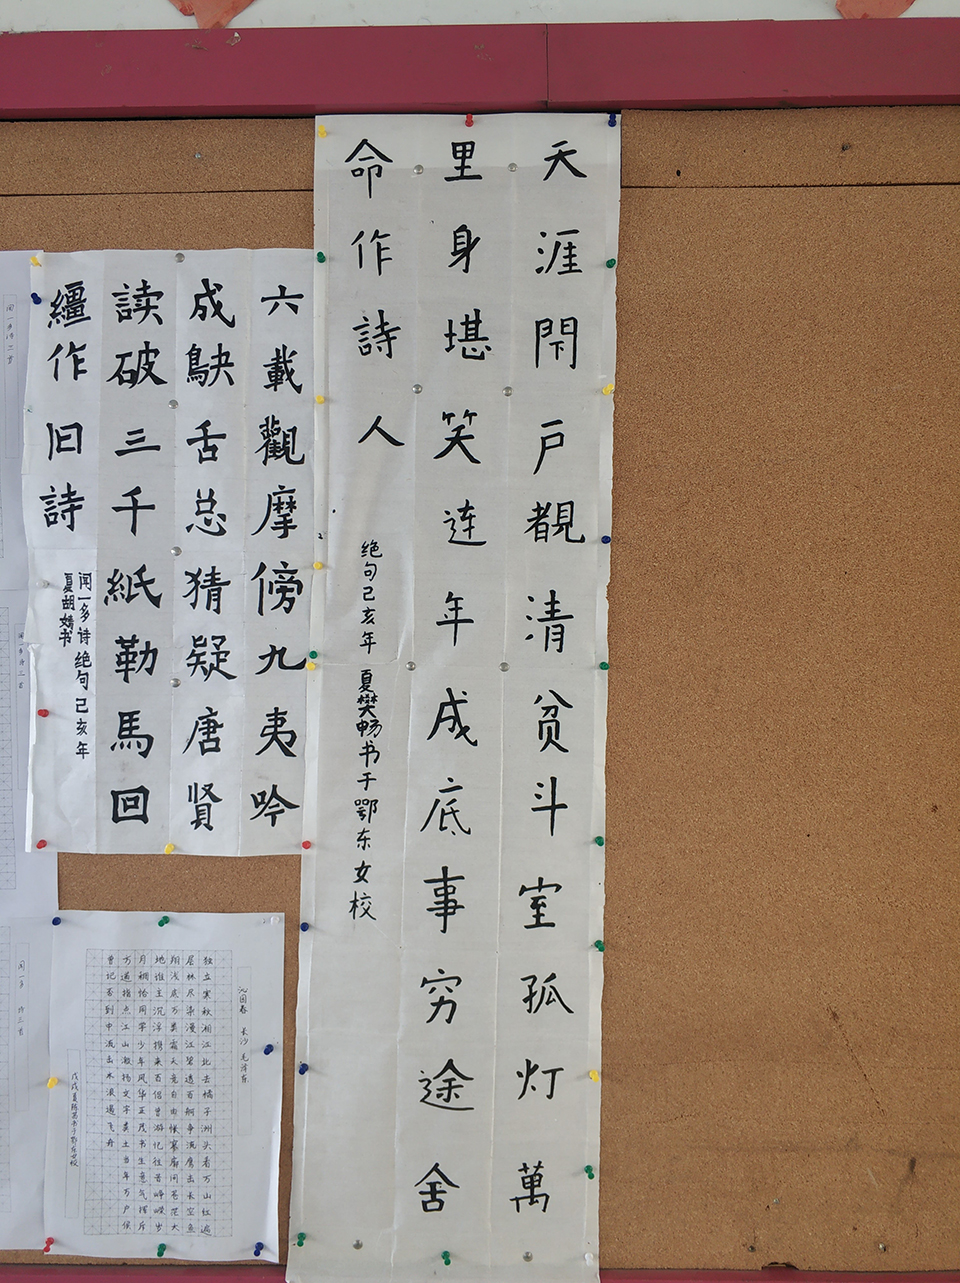 天涯閇戶覩清贫斗室孤灯萬
里身堪笑连年成底事穷途舍
命作詩人
绝句己亥年 夏樊畅书于鄂东女校
六載觀摩傍九夷吟
成鴃舌总猜疑唐賢
读破三千紙勒馬回
繮作旧詩
闻一多诗 绝句 己亥年
夏胡嫣书
沁园春 长沙 毛泽东
独立寒秋湘江北去橘子洲头看万山红遍
层林尽染漫江碧透百舸争流鹰击长空鱼
翔浅底万类霜天竞自由怅寥廓问苍茫大
地谁主沉浮携来百侣曾游忆往昔峥嵘岁
月稠恰同学少年风华正茂书生意气挥斥
方遒指点江山激扬文字粪土当年万户侯
曾记否到中流击水浪遏飞舟